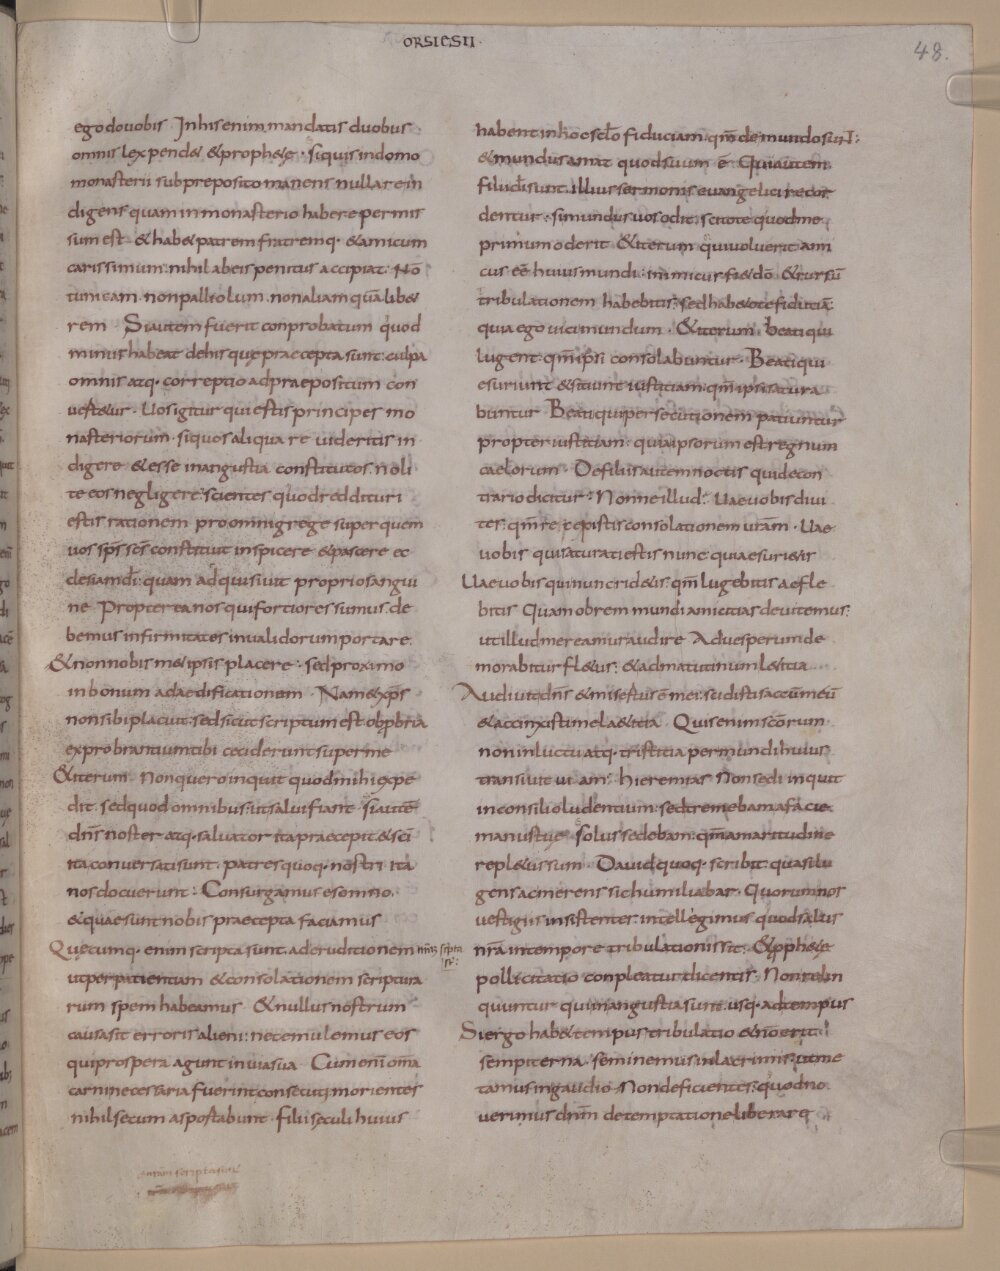 ORSIESII·
48.
ego do vobis· In his enim mandatis duobus
omnis lex pendet & prophetę· siquis in domo
monasterii sub preposito manens nulla re in
digens quam in monasterio habere permis
sum est· & habet patrem fratremq· & amicum
carissimum· nihil ab eis penitus accipiat· Nō
tunicam· non palliolum· non aliam quālibet
rem· Si autem fuerit conprobatum quod
minus habeat de his quę praecepta sunt· culpa
omnis atq· correptio ad praepositum con
vertetur· Uos igitur qui estis principes mo
nasteriorum· siquos aliqua re videritis in
digere & esse in angustia constitutos noli
te eos negligere· scientes quod reddituri
estis rationem pro omni grege super quem
vos sp̄s sc̄s constituit inspicere & pascere ec
clesiam dī· quam adquisivit proprio sangui
ne· Propterea nos qui fortiores sumus de
bemus infirmitates invalidorum portare·
& non nobis metipsis placere· sed proximo
in bonum ad aedificationem· Nam & xp̄s
non sibi placuit· sed sicut scriptum est obprobria
exprobrantium tibi ceciderunt super me
& iterum· Non quero inquit quod mihi expe
dit· sed quod omnibus· ut salvi fiant· Si autē
dn̄s noster atq· salvator ita praecepit & sc̄i
ita conversati sunt· patres quoq· nostri ita
nos docuerunt: Consurgamus e somno·
& quae sunt nobis praecepta faciamus
Quęcumq· enim scripta sunt· ad eruditionem nr̄am scripta
st̄:
ut per patientiam & consolationem scriptura
rum spem habeamus· & nullus nostrum
causa sit erroris alieni: nec emulemus eos
qui prospera agunt in via sua· Cum enī om̄a
carni necessaria fuerint consecuti· morientes
nihil secum asportabunt· filii sęculi huius
habent in hoc sclo fiduciam· qm̄ de mundo sunt:
& mundus amat quod suum ē· Qui autem
filii dī sunt· illius sermonis evangelici recor
dentur· si mundus vos odit· scitote quod me
primum oderit· & iterum qui voluerit ami
cus eē huius mundi· inimicus fiet dō· & rursū
tribulationem habebitis· sed habetote fiduciā·
quia ego vici mundum· & iterum· beati qui
lugent· qm̄ ipsi consolabuntur· Beati qui
esuriunt & sitiunt iustitiam· qm̄ ipsi satura
buntur· Beati qui persecutionem patiuntur
propter iustitiam· quia ipsorum est regnum
caelorum· De filiis autem noctis quid e con
trario dicitur? Nonne illud? Uae vobis divi
tes· qm̄ recepistis consolationem vr̄am· Uae
vobis qui saturati estis nunc· quia esurietis
Uae vobis qui nunc ridetis· qm̄ lugebitis ac fle
bitis· Quam obrem mundi amicitias devitemus·
ut illud mereamur audire· Ad vesperum de
morabitur fletus· & ad matutinum lętitia
Audivit dn̄s & misertus ē mei· scidisti saccū meū
& accinxisti me laetitia· Quis enim sc̄orum
non in luctu atq· tristitia per mundi huius
transivit viam· Hieremias· Non sedi inquit
in consilio ludentium· sed tremebam a facie
manus tuę· solus sedebam· qm̄ amaritudine
repletus sum· Dauid quoq· scribit· quasi lu
gens ac merens sic humiliabar· Quorum nos
vestigiis insistentes· intellegimus quod salus
nr̄a in tempore tribulationis sit· & pphetę
pollicitatio conpleatur dicentis· Non relin
quuntur qui in angustia sunt· usq· ad tempus
Si ergo habet tempus tribulatio & nō erit
sempiterna· seminemus in lacrimis· ut me
tamus in gaudio· Non deficientes· quod no
verimus dnm̄ de temptatione liberare